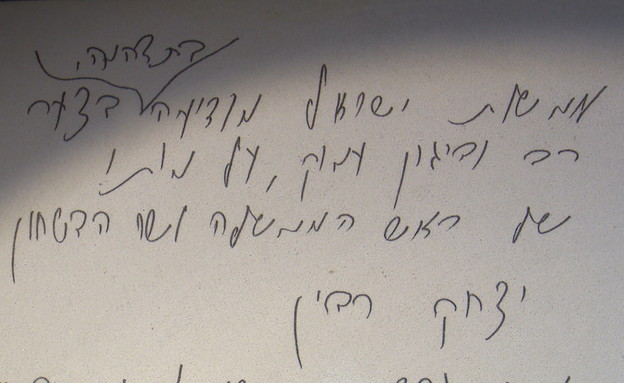 בתדהמה,
ממשלת ישראל מודיעה בצער
רב וביגון עמוק, על מותו
של ראש הממשלה ושר הבטחון
יצחק רבין